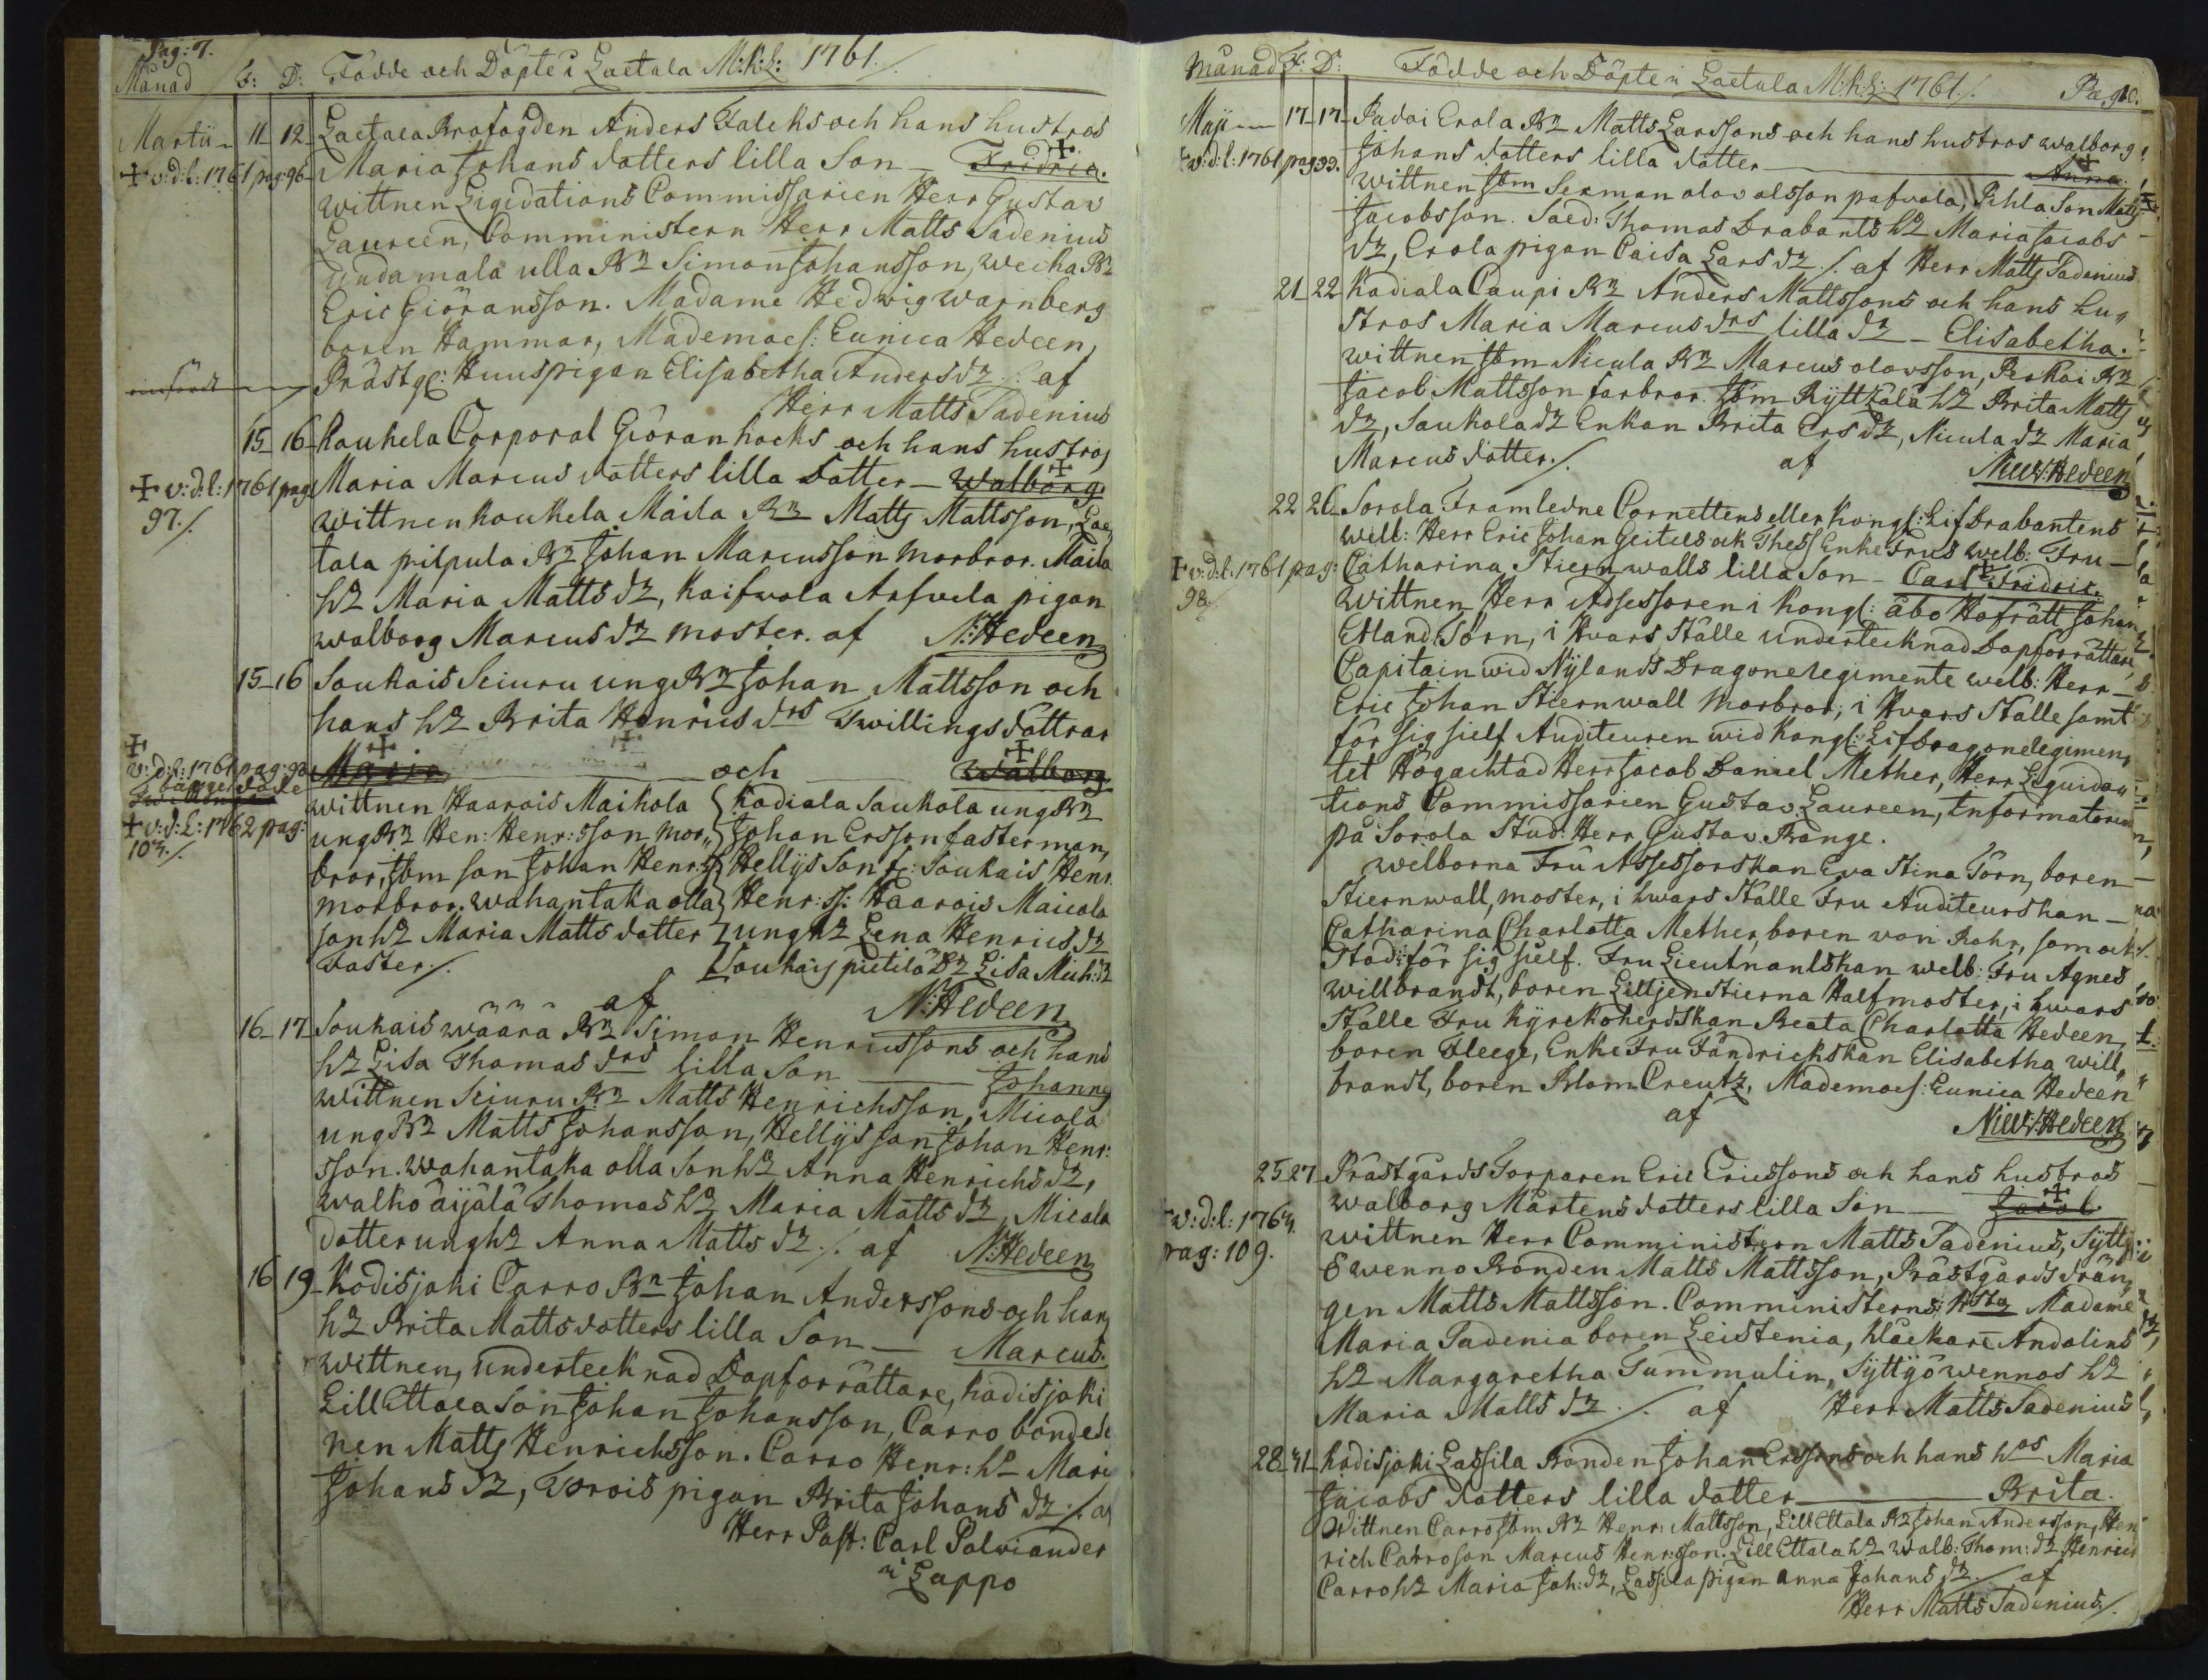 Pag: 7.
Månad F: D: Födde och Döpte i Laetala M:K:L: 1761./.
Martii 11 12 Laetala Brofogden Anders Falcks och hans hustros
v:d:l: 1761 pag: 96 Maria Johans dotters lilla Son Fridric.
Wittnen Liqvidations Commissarien Herr Gustav
Laureen, Comministern Herr Matts Tadenius
Undamala ulla Bn Simon Johansson, Wecha Bn
Eric Giöransson. Madame Hedwig Warnberg
boren Hammar, Mademoes: Eunica Hedeen,
Prästg: Huuspigan Elisabetha Anders dr ./. af
Herr Matts Tadenius
15 16 Koukela Corporal Giöran hocks och hans hustros
Maria Marcus dotters lilla Dotter Walborg.
v:d:l: 1761 pag: 97./.
Wittnen Koukela Maila Bn Matts Mattsson, Lae
tala pilpula Bn Johan Marcusson Morbror. Maila
h: Maria Matts dr, Kaifwola Arfwela pigan
Walborg Marcus dr moster. af N:Hedeen
15 16 Soukais Seiuru ung Bn Johan Mattsson och
hans h: Brita Henrics drs Twillings döttrar
Maria och Walborg
v:d:l: 1761 pag: 98
v:d:l: 1762 pag:
Wittnen Haarois Maikola
ung Bn Hen: Henr:sson Mor„
bror, Ibm son Johan Henr:ss
morbror. Wahantaka olla
son h: Maria Matts dotter
Faster./.
Kodiala Saukola ung Bn
Johan Ersson faster man,
Hellÿs Son f: Soukais Henr
Henr: ss: Haarois Maicola
ung h: Lena Henrics dr
Soukais pietilä Dr Lisa Mich: dr
af N:Hedeen
16 17 Soukais wäärä Bn Simon Henricssons och hans
h: Lisa Thomas drs lilla Son Johannes
Wittnen Seiuru Bn Matts Henrichsson, Micola
ung Bn Matts Johansson, Hellÿs son Johan Henr:
sson. Wahantaka olla son h: Anna Henrichs dr,
Walko äijälä Thomas h: Maria Matts dr, Micala
dotter ung h: Anna Matts dr ./. af N:Hedeen
16 19 Kodisjoki Carro Bn Johan Anderssons och hans
h: Brita Matts dotters lilla Son Marcus.
Wittnen, undertecknad Dopförrättare, Kodisjoki
Lill Ettala Son Johan Johansson, Carro bonde
nen Matts Henrichsson. Carro Henr: h: Mari
Johans dr, Torois pigan Brita Johans dr ./. af
Herr Past: Carl Polviander
i Lappo
Månad F: D: Födde och Döpte i Laetala M:K:L: 1761./. Pag
Maji 17 17 Padoi Erola Bn Matts Larssons och hans hustros Walborg
v:d:l: 1761 pag 99. Johans dotters lilla dotter Anna
Wittnen Ibm Sexman olov olsson pafwola, Pihla Son Matts
Jacobsson. Soed: Thomas Drabants h: Maria Jacobs
dr, Erola pigan Caisa Lars dr ./. af Herr Matts Tadenius
21 22 Kodiala Caupi Bn Anders Mattssons och hans hu„
stros Maria Marcus drs lilla dr Elisabetha.
Wittnen Ibm Nicula Bn Marcus olovsson, Perkoi Bn
Jacob Mattsson farbror. Ibm Rÿttzälä h: Brita Matts
dr, Saukola dr Enkan Brita Ers dr, Nicula dr Maria
Marcus dotter./. af Nic:V:Hedeen
22 26 Sorola Framledne Cornettens eller kongl: Lif Drabantens
well: Herr Eric Johan Geitels ock Thess Enke Frus Welb: Fru
v:d:l: 1761 pag: 98 Catharina Stiernwalls lilla Son Carl Fridric.
Wittnen Herr Assessoren i Kongl: åbo Hofrätt Johan
Etland Törn, i Hvars Ställe undertecknad Dopförrättare,
Capitain wid Nÿlands Dragoneregimente welb: Herr
Eric Johan Stiernwall Morbror; i Hvars Ställe samt
för sig sielf Auditeuren wid Kongl: Lifdragoneregimen„
tet Högachtad Herr Jacob Daniel Mether, Herr Liquida„
tions Commissarien Gustav Laureen, Informatoren
på Sorola Stud: Herr Gustav Range.
Welborna Fru Assessorskan Eva Stina Törn, boren
Stiernwall, moster, i hwars Ställe Fru Auditeurskan
Catharina Charlotta Mether, boren von Rohr, som ock
stod för sig sielf. Fru Lieutnantskan welb: Fru Agnes
Willbrandt, boren Lilljenstierna Halfmoster, i hwars
Ställe Fru Kÿrckoherdskan Beata Charlotta Hedeen,
boren Fleege, Enke Fru Fändrickskan Elisabetha Will„
brandt, boren Blom Creutz, Mademoes: Eunica Hedeen
af Nic:V:Hedeen
25 27 Prästgårds Torparen Eric Ericssons och hans hustros
Walborg Mårtens dotters lilla Son Jacob
pag: 109. Wittnen Herr Comministern Matts Tadenius, Sÿtt
Ewenno Bonden Matts Mattsson, Prästgårds drän„
gen Matts Mattsson. Comministerns Madame
Maria Tadenia boren Leistenia, Klåckare Andelins
h: Margaretha Tummulin, Sÿttÿöwennos h:
Maria Matts dr ./. af Herr Matts Tadenius
28 31 Kodisjoki Lassila Bonden Johan Erssons och hans h:os Maria
Jacobs dotters lilla dotter Brita.
Wittnen Carro Ibm Bn Henr: Mattsson, Lill Ettala Bn Johan Andersson, Hen
rich Carro son Marcus Henr:sson. Lill Ettala h: Walb: Thom: dr, Henrics
Carro h: Maria Joh: dr, Lassila pigan Anna Johans dr ./. af
Herr Matts Tadenius./.